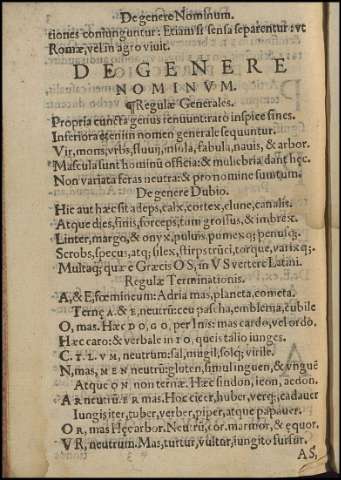 De genere Nominum.
tiones coniunguntur: Etiam si sensa separentur: vt
Romæ, vel in agro viuit.
DE GENERE
NOMINVM.
¶Regulæ Generales.
Propria cuncta genus tenuunt: rarò inspice fines.
Inferiora etenim nomen generale sequuntur.
Vir, mons, vrbs, fluuij, insula, fabula, nauis, & arbor.
Mascula sunt hominũ officia: & muliebria dant hęc.
Non variata feras neutra: & pro nomine sumtum.
De genere Dubio.
Hic aut hæc sit adeps, calx, cortex, clune, canalis.
Atque dies, finis, forceps, tum grossus, & imbrex.
Linter, margo, & onyx, puluis, pumexq; penusq;
Scrobs, specus, atq; silex, stirps trũci, torque, varixq;
Multaq; quæ è Græcis OS, in VS vertere Latini.
Regulæ Terminationis.
A, & E, fœmineum: Adria mas, planeta, cometa.
Ternę A, & E, neutrũ: ceu pascha, emblema, cubile
O, mas. Hæc DO, GO, per Inis: mas cardo, vel ordo.
Hæc caro: & verbale in IO, queis talio iunges.
C, T, L, VM, neutrum: sal, mugil, solq; virile.
N, mas, MEN neutrũ: gluten, simul inguen, & vnguẽ
Atque ON non ternæ. Hæc sindon, icon, aedon.
AR neutrũ: ER mas. Hoc cicer, huber, verq; cadauer
Iungis iter, tuber, verber, piper, atque papauer.
OR, mas Hęc arbor. Neutrũ, cor, marmor, & ęquor.
VR, neutrum. Mas, turtur, vultur, iungito furfur.
AS,